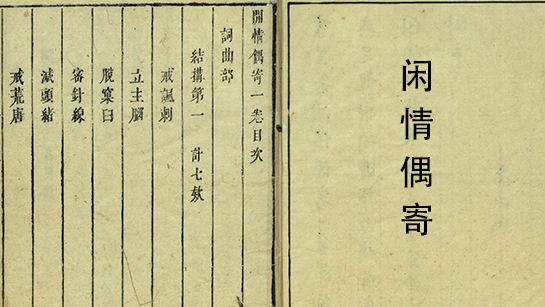 闲情偶寄
閒情偶寄一卷目次
詞曲部
結構第一 計七款
戒諷刺
立主腦
脫窠臼
密針線
減頭緒
戒荒唐